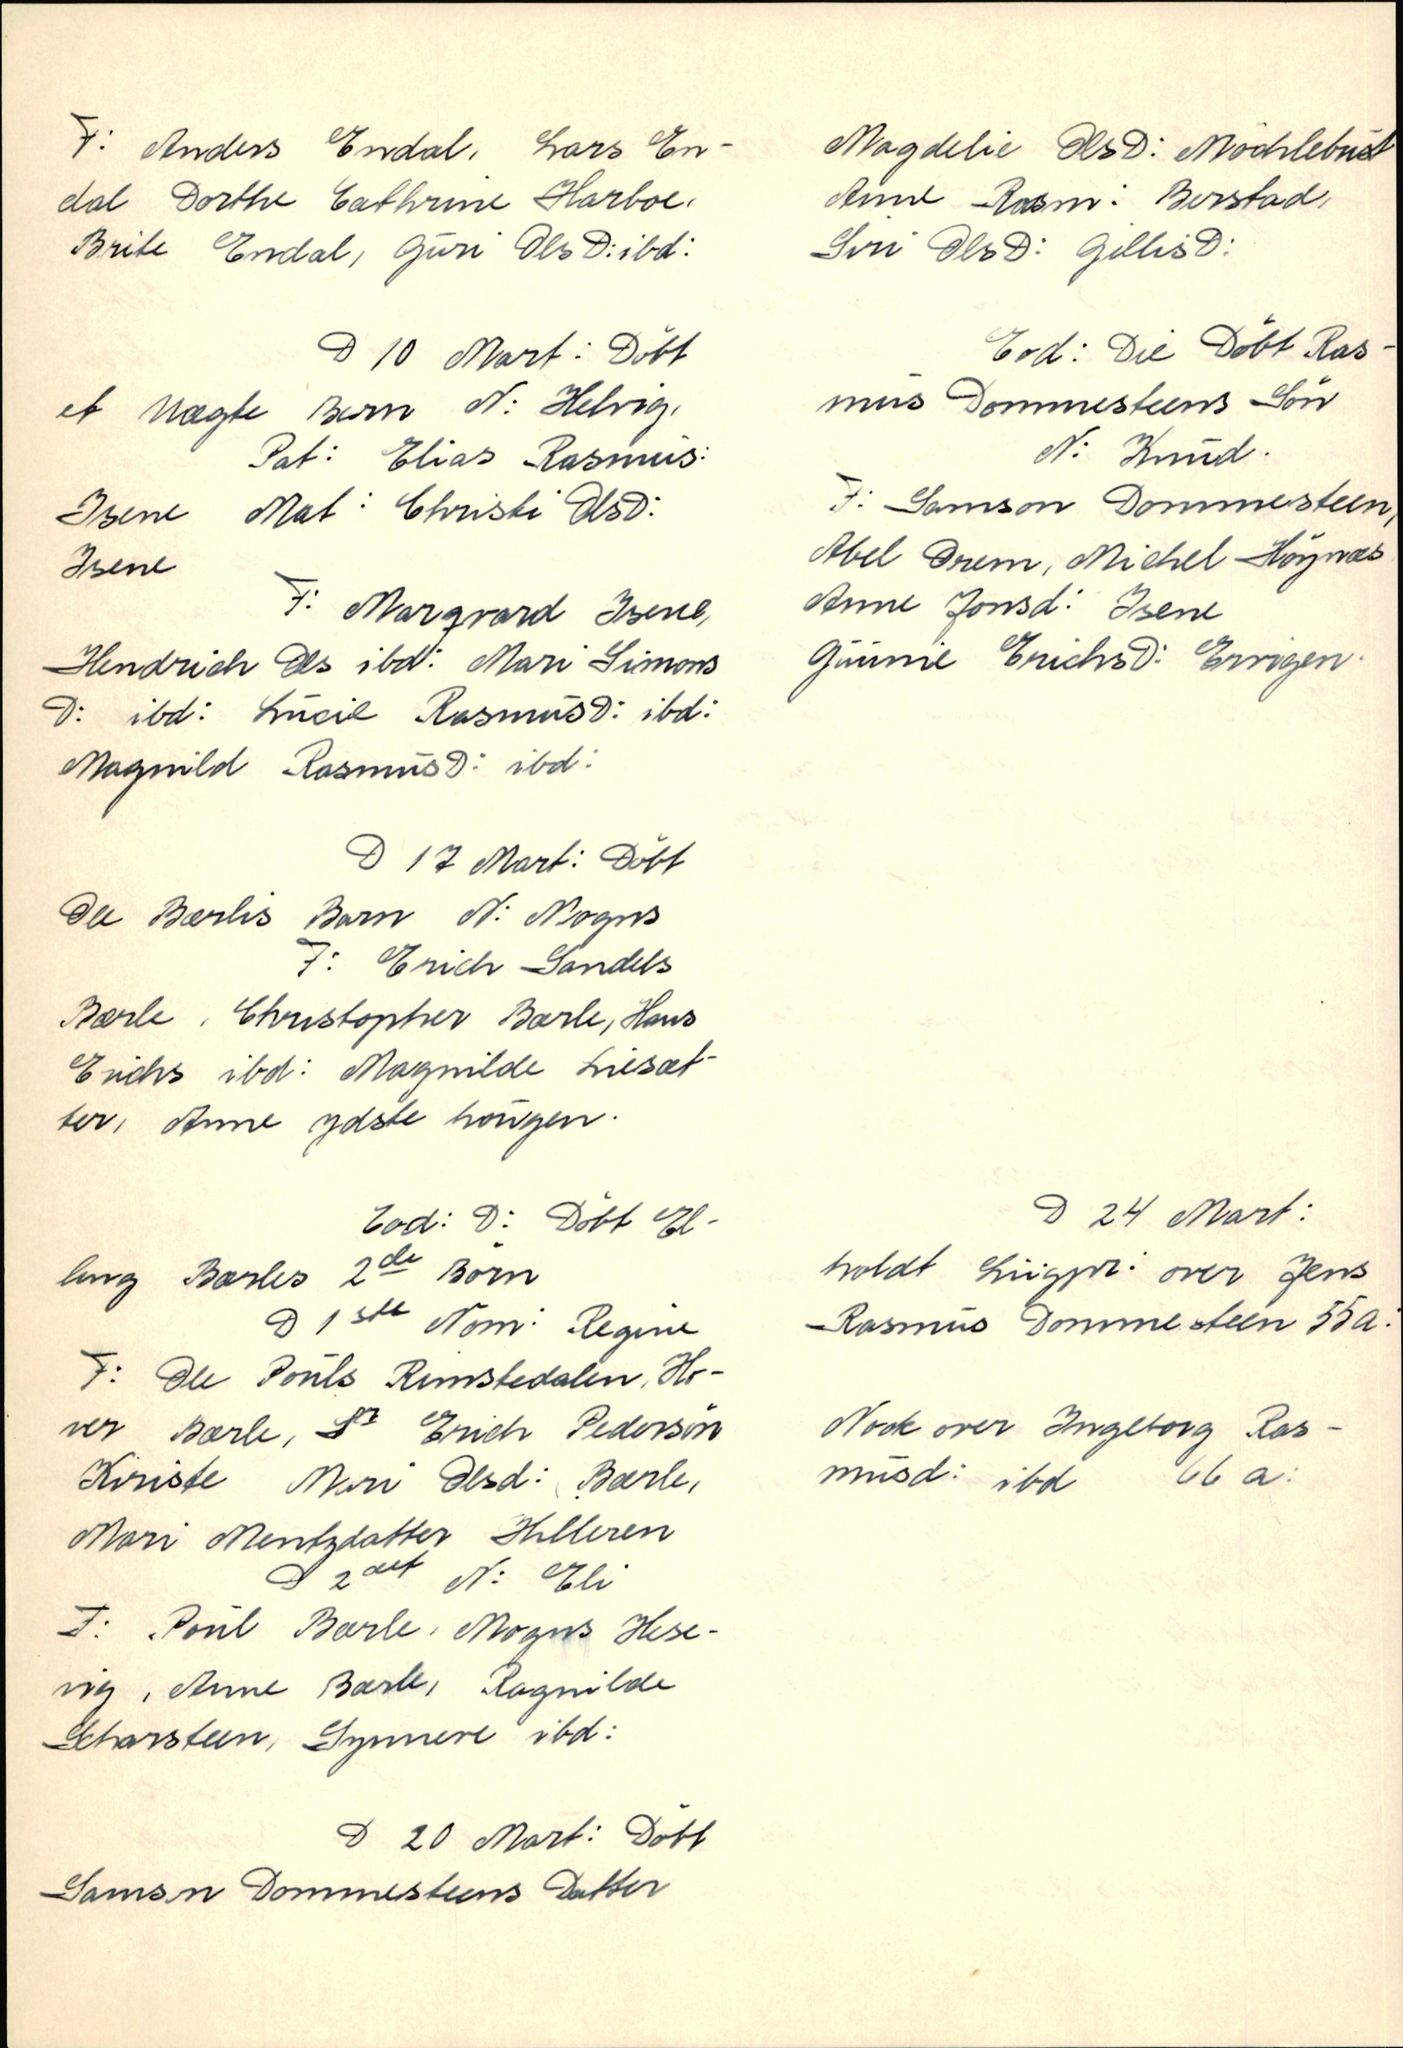 F: Anders Endal, Lars En-
dal Dorthe Cathrine Harboe,
Brite Endal, Guri OlsD: ibd:
D 10 Mart: Döbt
et Uægte Barn N: Helvig,
Pat: Elias Rasmus:
Isene Mat: Christi OlsD:
Isene
F: Marqvard Isene,
Hendrich Ols ibd: Mari Simons
D: ibd: Lucie RasmusD: ibd:
Magnild RasmusD: ibd:
D 17 Mart: Döbt
Ole Bærlis Barn N: Mogns
F: Erich Sandels
Bærle, Christopher Bærle, Hans
Erichs ibd: Magnilde Liesæt-
ter, Anne ydste hougen.
Eod: D: Döbt El-
ling Bærles 2de Börn
D 1ste Nom: Regine
F: Ole Pouls Rimstedalen, Ho-
ver Bærle, Sr Erich Pedersön
Kiriste Mari Olsd: Bærle,
Mari Mentzdatter Hilleren
D 2det N: Eli
F: Poul Bærle, Mogns Hese-
vig, Anne Bærle, Ragnilde
Scharsteen, Synneve ibd:
D 20 Mart: Döbt
Samsn Dommesteens Datter
Magdelie OlsD: Möchlebust
Anne Rasm: Berstad,
Siri OlsD: GillisD:
Eod: Die Döbt Ras-
mus Dommesteens Sön
N: Knud.
F: Samson Dommesteen,
Abel Drem, Michel Höynæs
Anne Jonsd: Isene
Guunie ErichsD: Ervigen.
D 24 Mart:
holdt Liigpr: over Jens
Rasmus Dommesteen 55 a:
Nock over Ingeborg Ras-
musd: ibd 66 a: